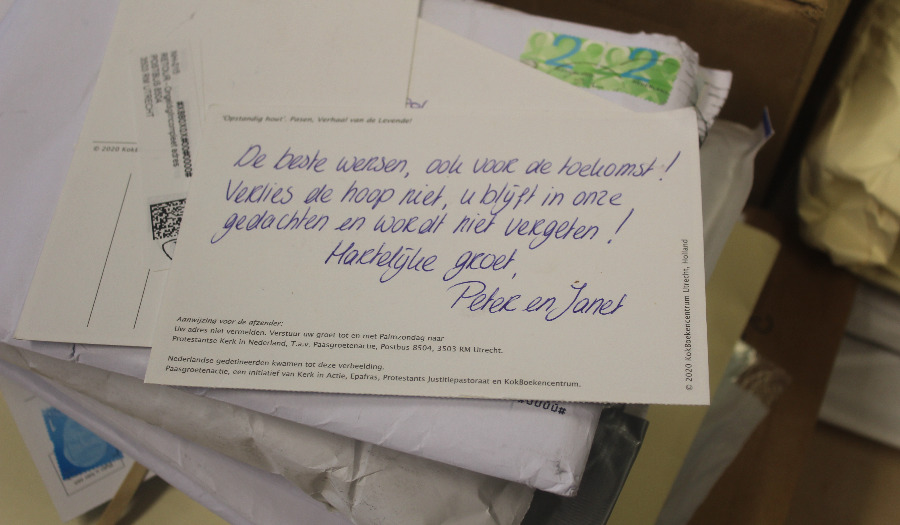 'Opstandig hout'. Pasen, Verhaal van de Levende!
De beste wensen, ook voor de toekomst!
Verlies de hoop niet, u blijft in onze
gedachten en wordt niet vergeten!
Hartelijke groet,
Peter en Janet
Aanwijzing voor de afzender:
Uw adres niet vermelden. Verstuur uw groet tot en met Palmzondag naar
Protestantse Kerk in Nederland, T.a.v. Paasgroetenactie, Postbus 8504, 3503 RM Utrecht.
Nederlandse gedetineerden kwamen tot deze verbeelding.
Paasgroetenactie, een initiatief van Kerk in Actie, Epafras, Protestants Justitiepastoraat en KokBoekencentrum.
© 2020 KokBoekencentrum Utrecht, Holland
© 2020 Kok
RETOUR - Ongeldig/incompleet adres
POSTBUS 8504
3503 RM UTRECHT
2 2